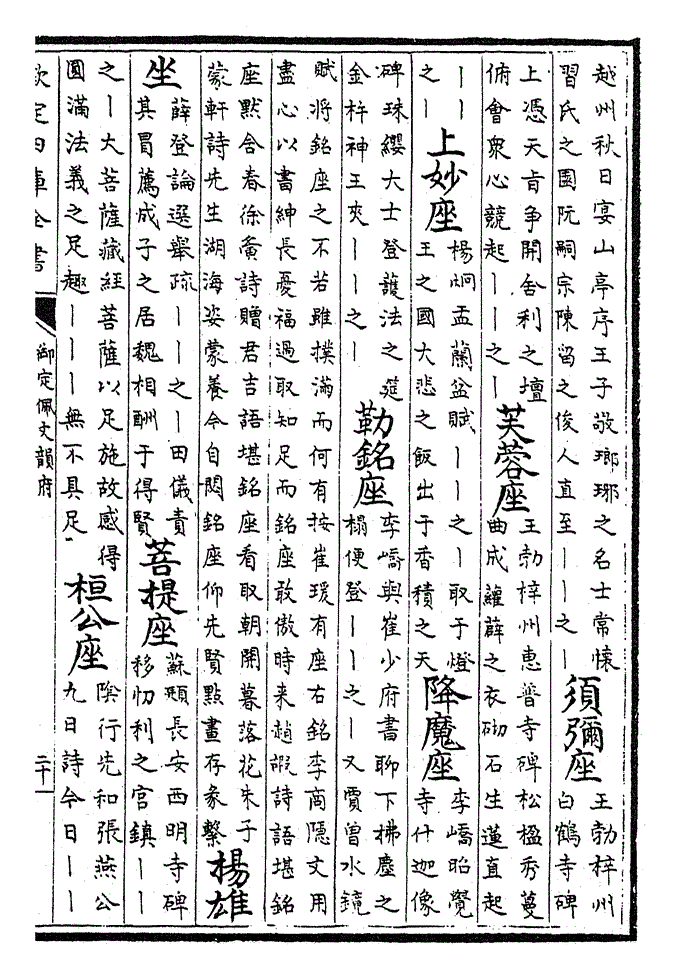 越州秋日宴山亭序王子敬瑯琊之名士常懷
習氏之園阮嗣宗陳留之俊人直至丨丨之丨
須彌座
王勃梓州
白鶴寺碑
上憑天㫖爭開舍利之壇
俯會衆心競起丨丨之丨
芙蓉座
王勃梓州惠普寺碑松楹秀蔓
曲成蘿薜之衣砌石生蓮直起
丨丨
之丨
上妙座
楊炯盂蘭盆賦丨丨之丨取于燈
王之國大悲之飯出于香積之天
降魔座
李嶠昭覺
寺什迦像
碑珠纓大士登護法之筵
金杵神王夾丨丨之丨
勒銘座
李嶠與崔少府書聊下拂塵之
榻便登丨丨之丨又賈曾水鏡
賦將銘座之不若雖撲滿而何有按崔瑗有座右銘李商隱文用
盡心以書紳長憂福過取知足而銘座敢傲時来趙嘏詩語堪銘
座默含春徐夤詩贈君吉語堪銘座看取朝開暮落花朱子
蒙軒詩先生湖海姿蒙養今自閟銘座仰先賢點畫存彖繫
楊雄
坐
薛登論選舉疏丨丨之丨田儀責
其冒薦成子之居魏相酬于得賢
菩提座
蘇頲長安西明寺碑
移忉利之宫鎮丨丨
之丨大菩薩藏經菩薩以足施故感得
圓滿法義之足趣丨丨丨無不具足
桓公座
陰行先和張燕公
九日詩今日丨丨
欽定四庫全書
御定佩文韻府
二十一